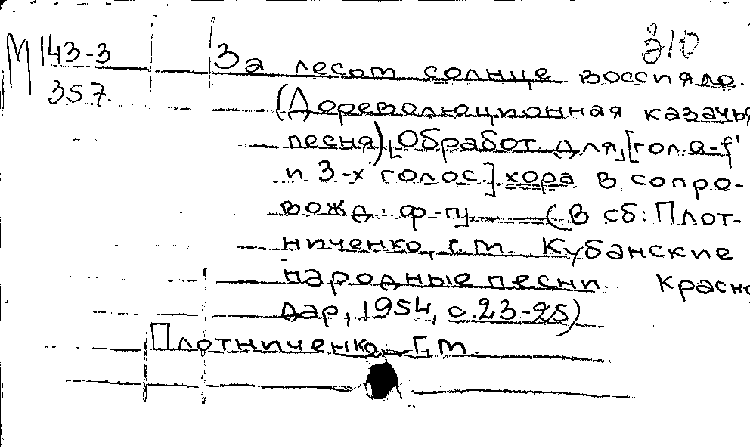 310
М 143-3 За лесом солнце воссияло.
357 (Дореволюционная казачья
песня). Обработ. для [гол. a-f'
и 3-х голос.] хора в сопро-
вожд. ф-п. (В сб: Плот-
ниченко, Г.М. Кубанские
народные песни. Красно
дар, 1954, с.23-25)
Плотниченко Г.М.